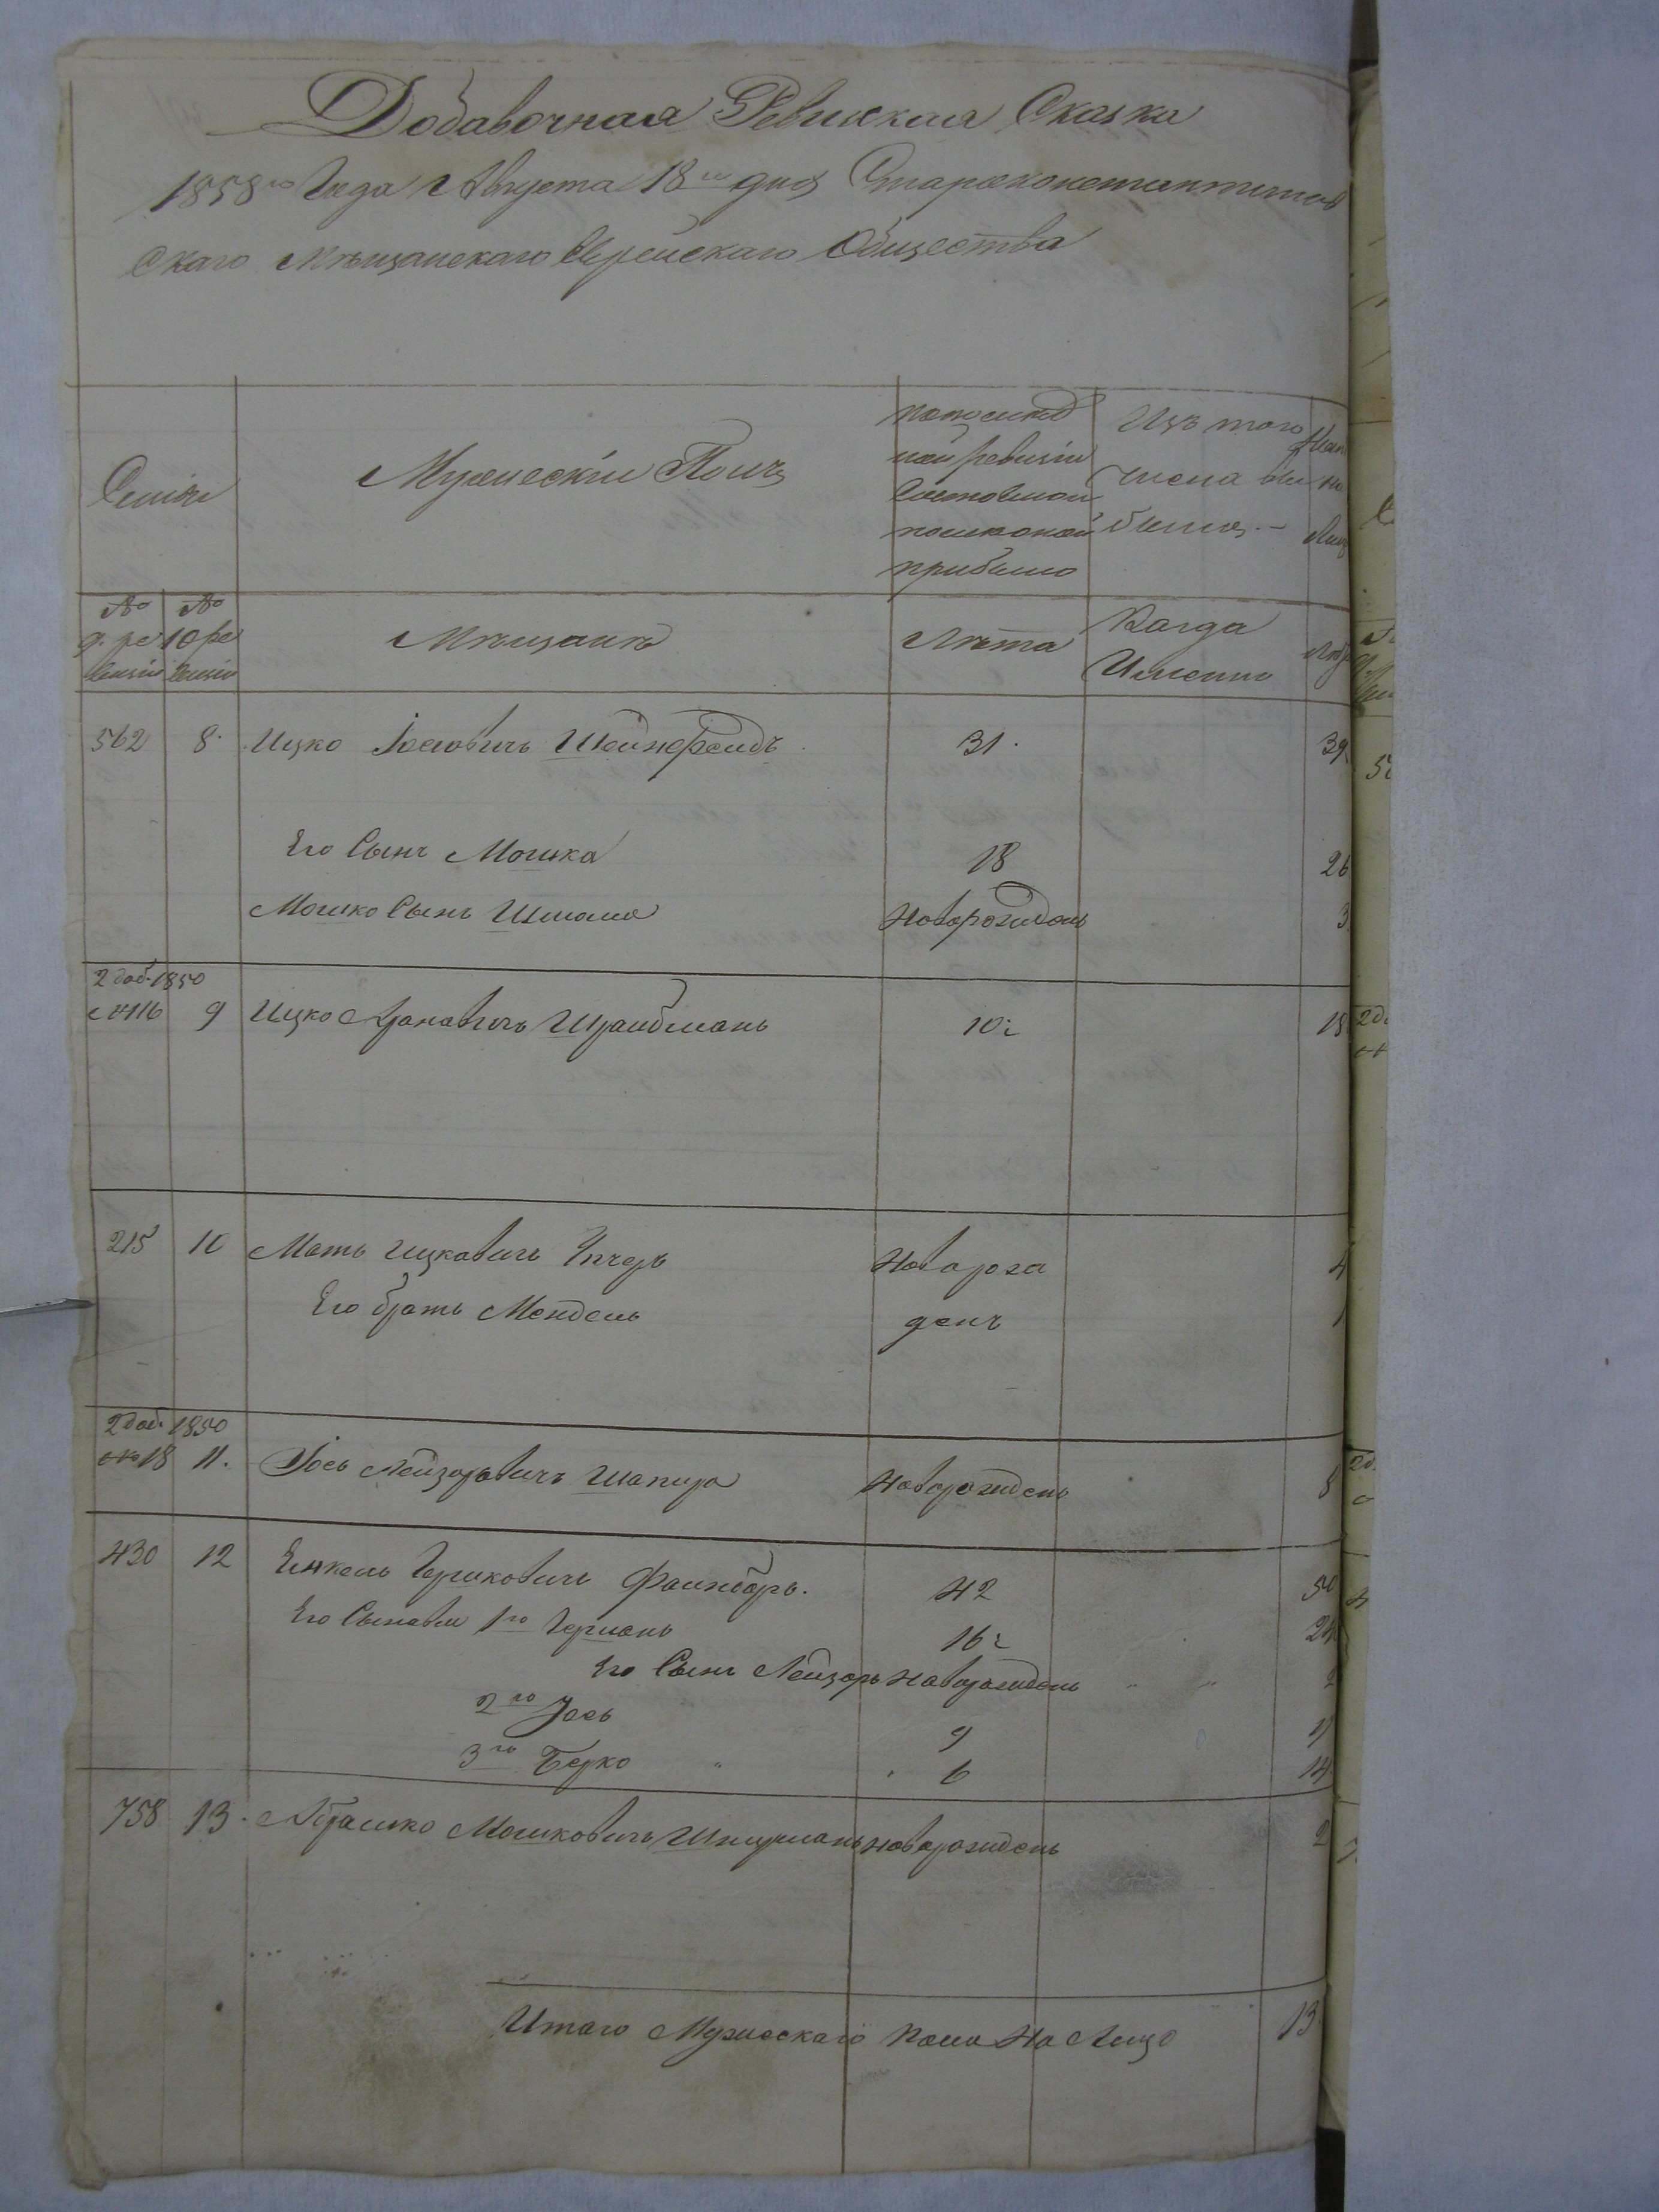 Добавочная Ревизская Сказка
1858го Года Августа 18го дня Староконстантинов
Скаго Мѣщанскаго Еврейскаго Общества
Семьи
Мужескій Полъ
По послѣд
ней ревизіи
Состояло и
после оной
прибыло
Изъ того
числа вы
было. —
№ 9. ре визіи
№ 10 ре визіи
Мѣщанъ
Лѣта
Когда
Именно
562 8. Ицко Іосіовичъ Шейнфельдъ 31. 39
Его Сынъ Мошко 18 26
Мошко Сынъ Шмома Новорожденъ 3
2 доб. 1850
с №16 9 Ицко Арановичъ Шрайбманъ 10½ 18
215 10 Мать Ицковичъ Новорож 4
Его братъ Мендель денъ 1
2 доб. 1850
с №18 11. Іось Лейзоровичъ Шапиро Новорожденъ 8
430 12 Енкель Гершковичъ 42 50
Его Сыновья 1го Германъ 16½ 24
Его Сынъ Лейзоръ Новорожденъ " " 2
2го Іось 9 17
3го Берко " " 6 14
758 13. Абрамко Мошковичъ Шпурманъ Новорожденъ 2
Итого Мужескаго Пола На Лицо 13